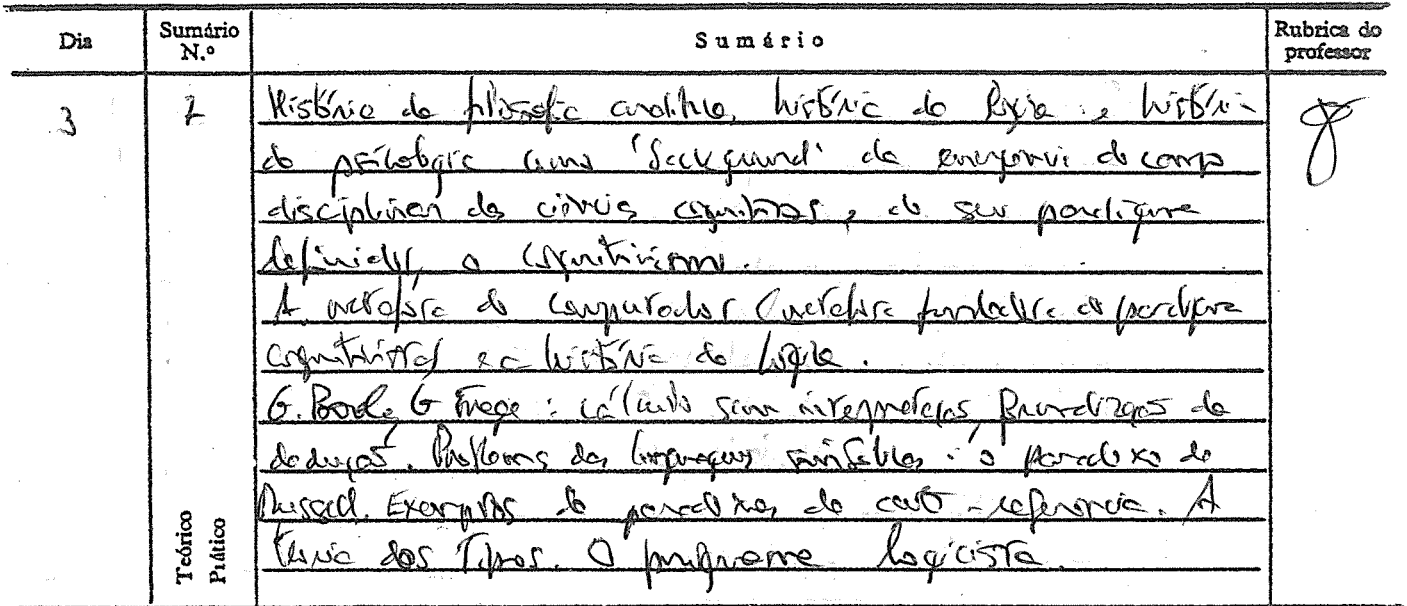 Dia Sumário N.º Sumário Rubrica do professor
3 2 História da filosofia analítica, história da lógica e história
da psicologia como 'background' da emergência do campo
disciplinar das ciências cognitivas, e do seu paradigma
definidor, o cognitivismo.
A metáfora do computador (metáfora fundadora do paradigma
cognitivista) e a história da lógica.
G. Boole, G Frege: cálculo sem interpretação, formalização da
dedução. Problemas das linguagens simbólicas: o paradoxo de
Russell. Exemplos de paradoxos de auto-referência. A
Teoria dos Tipos. O programa logicista.
Teórico
Prático